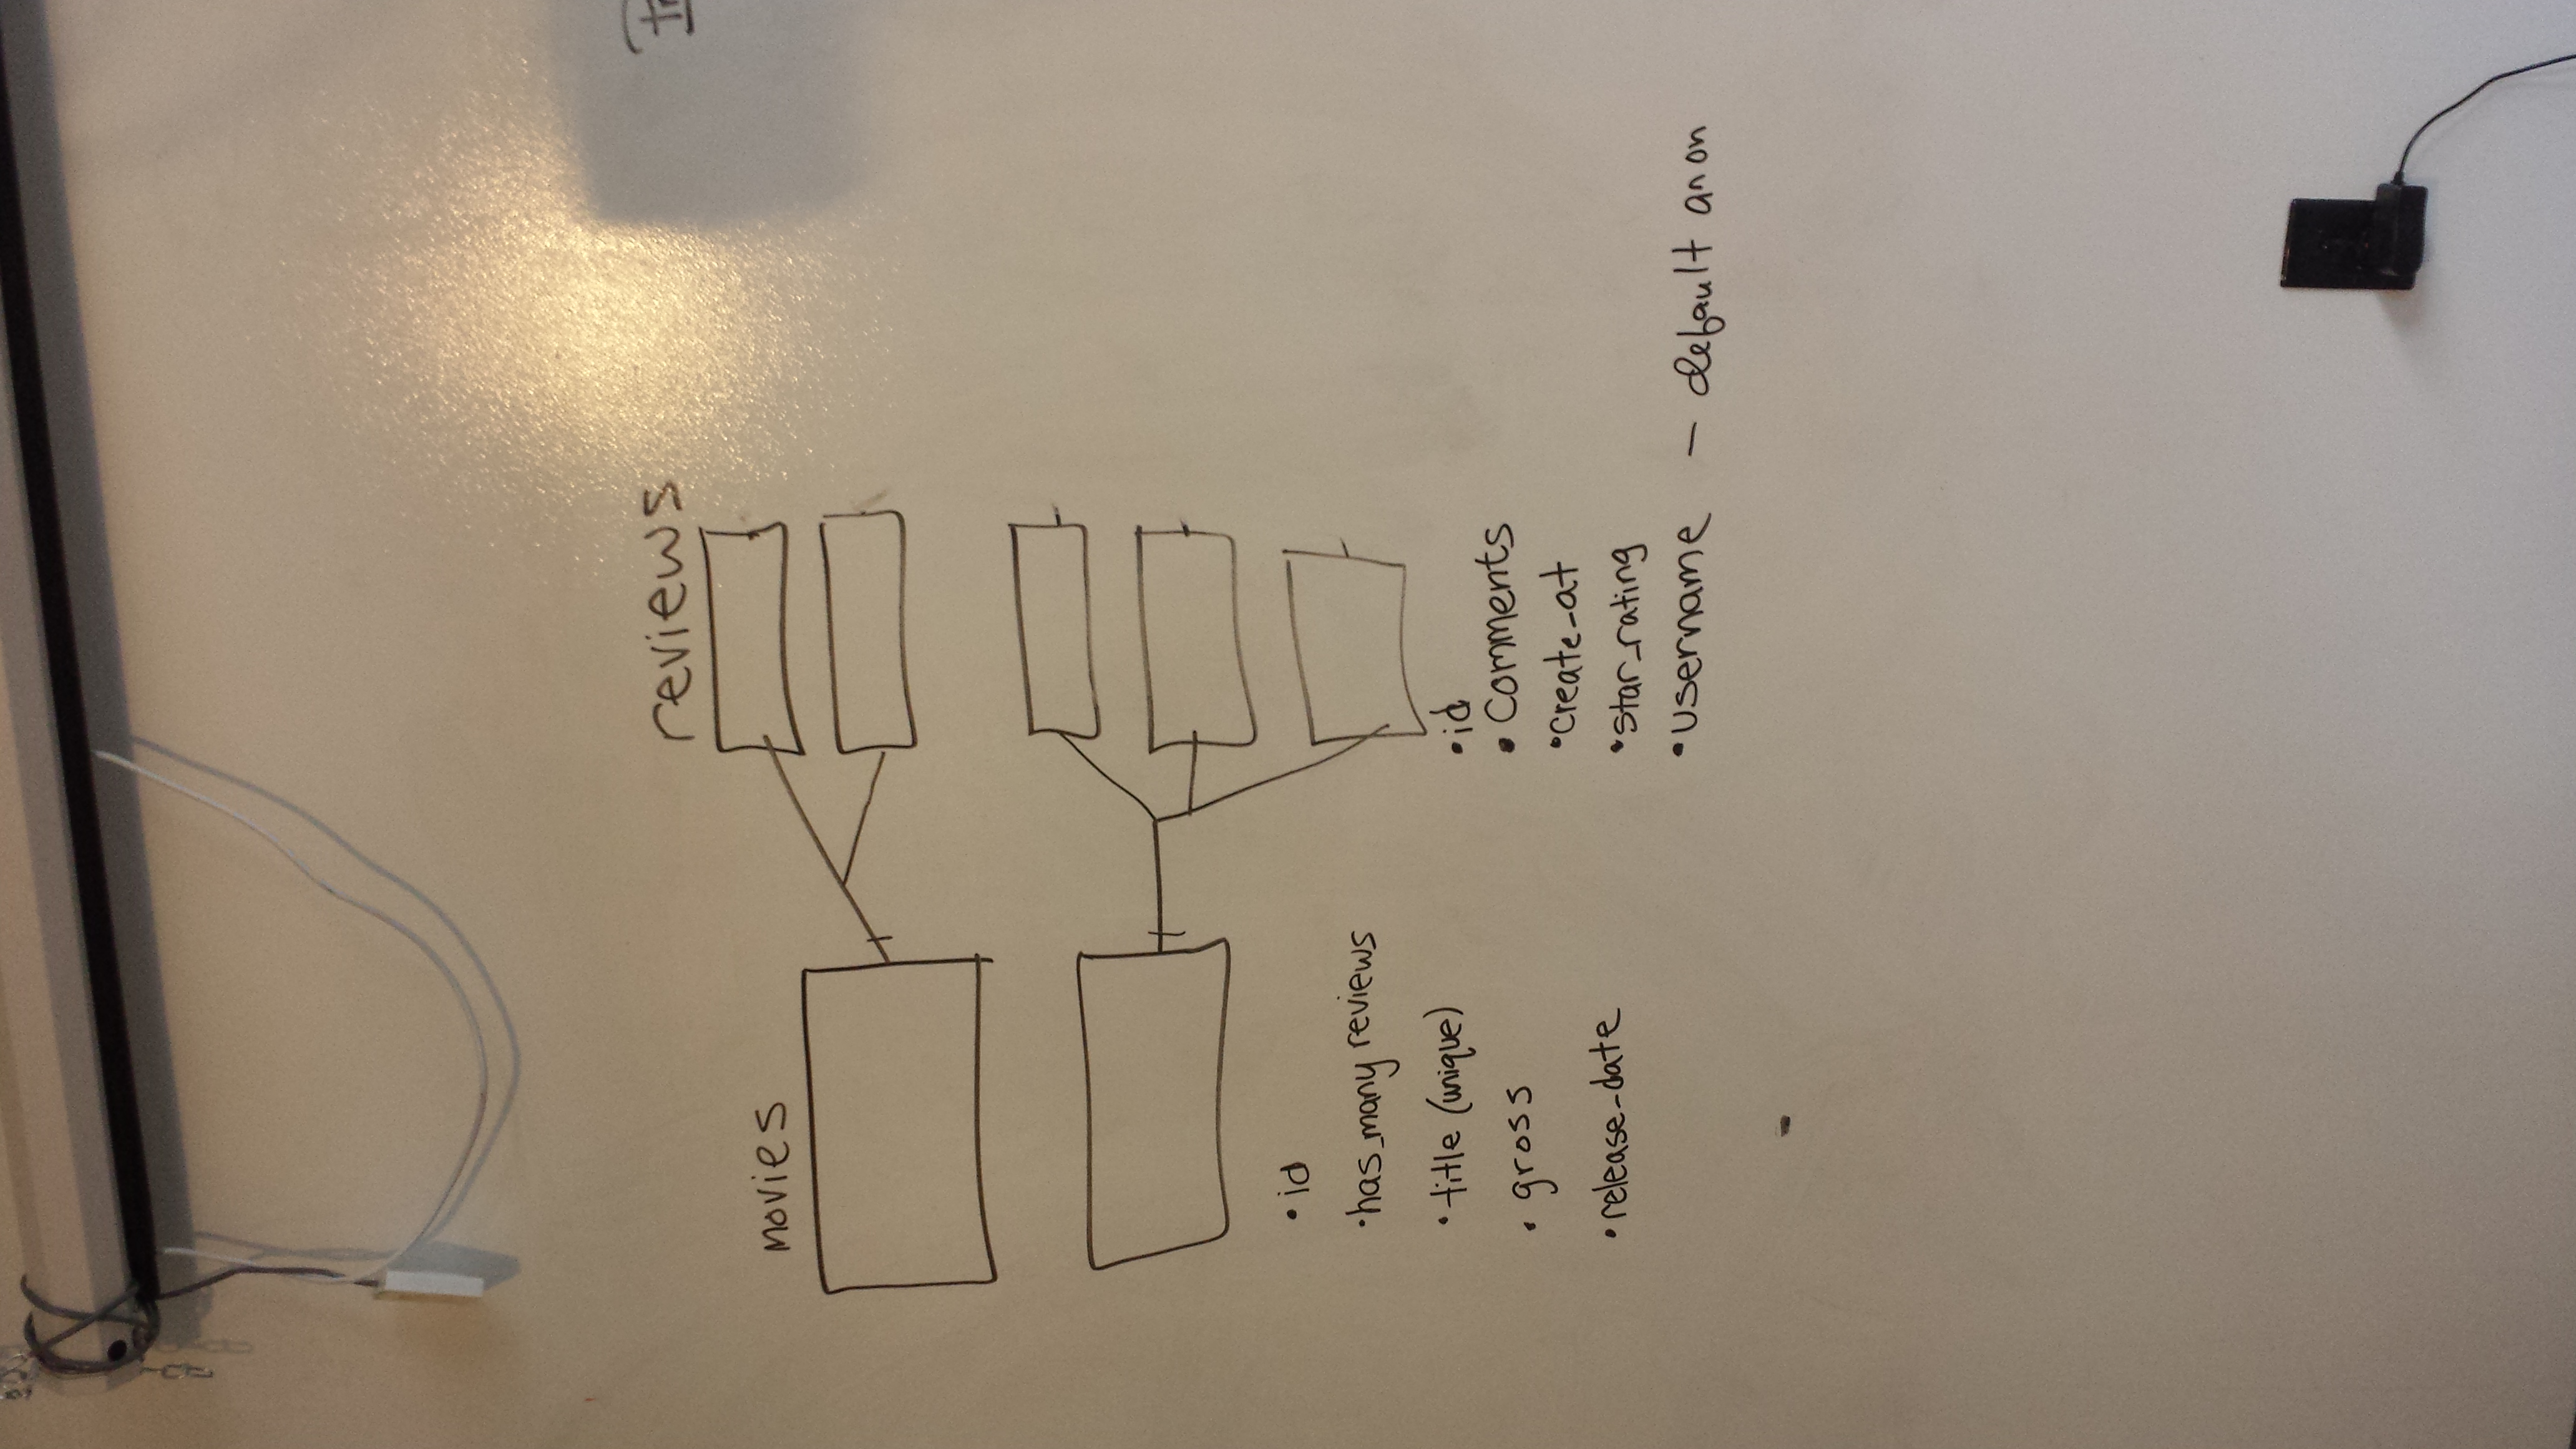 reviews
movies
• id
• has_many reviews
• title (unique)
• gross
• release-date
• id
• Comments
• create-at
• star_rating
• username – default anon